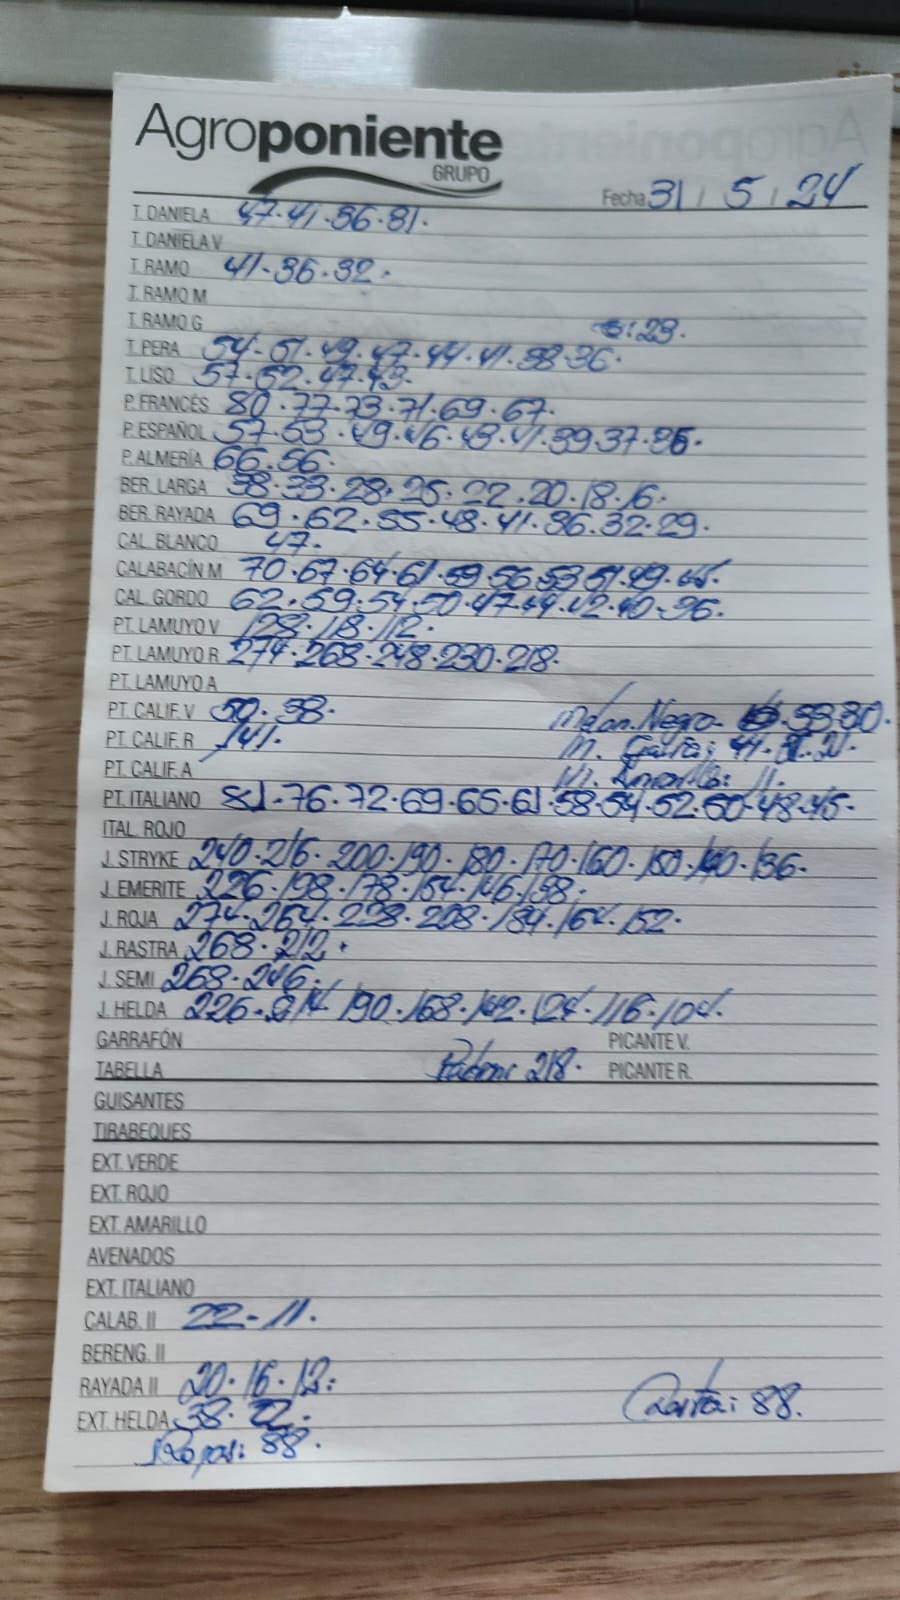 Agroponiente
GRUPO
Fecha 31 / 5 / 24
T. DANELA 47.41.36.31.
T. DANIELA V
T. RAMO 41.36.32.
T. RAMO M
T. RAMO G :23.
T. PERA 54.51.49.47.44.41.38.36.
T. LISO 57.52.47.43.
P. FRANCÉS 80.77.73.71.69.67.
P. ESPAÑOL 57.53.49.46.43.41.39.37.35.
P. ALMERÍA 66.56.
BER. LARGA 38.33.28.25.22.20.18.16.
BER. RAYADA 69.62.55.48.41.36.32.29.
CAL. BLANCO 47.
CALABACÍN M 70.67.64.61.59.56.53.51.49.45.
CAL. GORDO 62.59.54.50.47.44.42.40.36.
PT. LAMUYO V 128.118.112.
PT. LAMUYO R 274.268.248.230.218.
PT. LAMUYO A
PT. CALIF. V 50.38. Melon. Negro 53.30.
PT. CALIF. R 141. M. Galia: 41.
PT. CALIF. A M. Amarillo: 11.
PT. ITALIANO 81.76.72.69.65.61.58.54.52.50.48.45.
ITAL. ROJO
J. STRYKE 240.216.200.190.180.170.160.150.140.136.
J. EMERITE 226.198.178.154.146.138.
J. ROJA 274.264.228.208.184.164.152.
J. RASTRA 268.212.
J. SEMI 268.246.
J. HELDA 226.214.190.168.142.124.116.104.
GARRAFÓN PICANTE V.
TABELLA Padron: 218. PICANTE R.
GUISANTES
TIRABEQUES
EXT. VERDE
EXT. ROJO
EXT. AMARILLO
AVENADOS
EXT. ITALIANO
CALAB. II 22-11.
BERENG. II
RAYADA II 20.16.12.
EXT. HELDA 38.22. 88.
88.